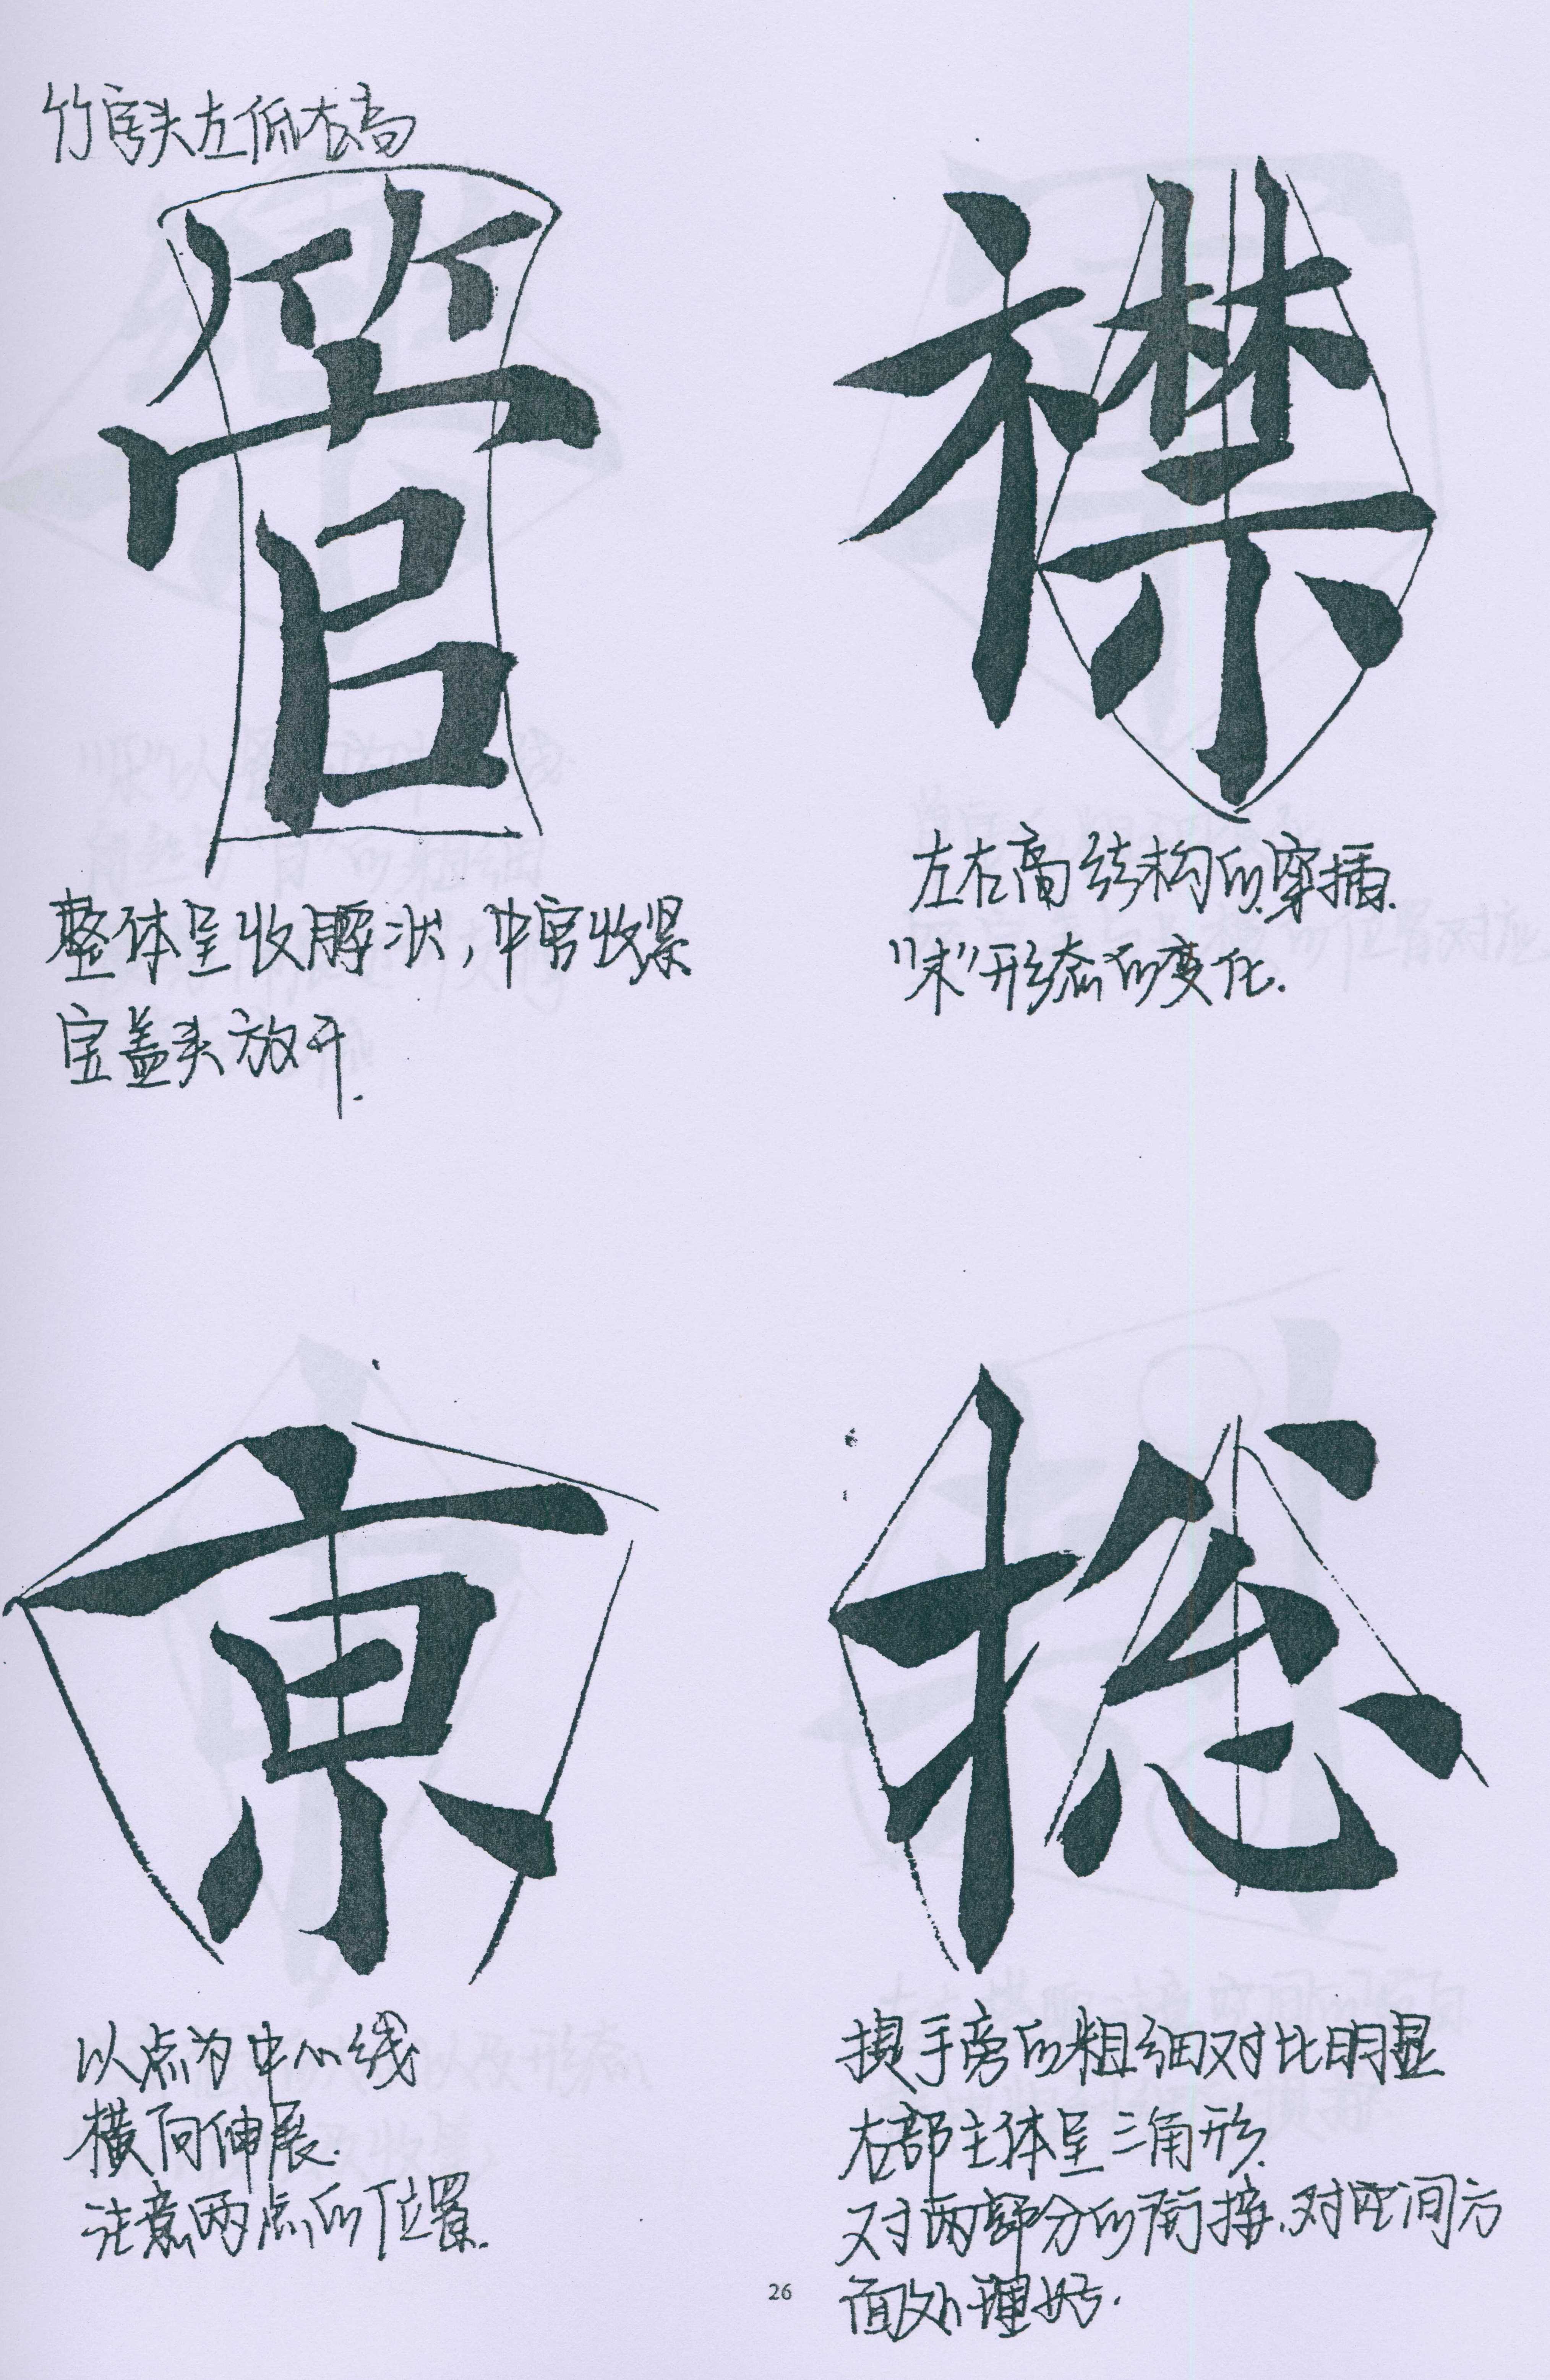 竹字头左低右高
管
整体呈收腰状，中宫收紧
宝盖头放开.
襟
左右高结构的穿插.
"末"形态的变化.
京
以点为中心线
横向伸展.
注意两点的位置.
揔
提手旁的粗细对比明显
右部主体呈三角形.
对两部分的衔接.对空间方
面处理好.
26